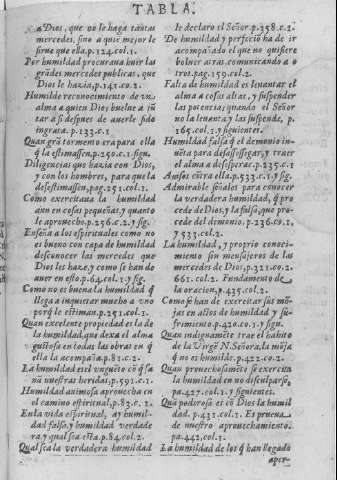 TABLA.
a Dios, que no le haga tantas
mercedes, sino a quiẽ mejor le
sirue que ella.p.124.col.1.
Por humildad procuraua huir las
grãdes mercedes publicas, que
Dios le hazia, p.141.co.2.
Humilde reconocimiento de vn
alma a quien Dios buelue a jũ
tar a si despues de auerle sido
ingrata. p.133.c.1
Quan grã tormento era para ella
q̃ la estimassen, p.250.c.1.sign.
Diligencias que hazia con Dios,
y con los hombres, para que la
desestimassen, pag.251.col.2.
Como exercitaua la humildad
aun en cosas pequeñas, y quanto
le aprouecho.p.256.c.2. y sig.
Enseña a los espirituales como no
es bueno con capa de humildad
desconocer las mercedes que
Dios les haze, y como se han de
auer en esto.p.64.col.1.y sig.
Como no es buena la humildad q̃
llega a inquietar mucho a vno
porq̃ le estiman.p.251.col.1.
Quan excelente propiedad es la de
la humildad, que dexa el alma
gustosa en todas las obras en q̃
ella la acompaña.p.81.c.2.
La humildad es el vnguẽto cõ q̃ sa
nã nuestras heridas.p.591.c.1.
Humildad animosa aprouecha en
el camino espiritual, p.82.c.2.
En la vida espiritual, ay humil-
dad falsa, y humildad verdade
ra, y qual sea esta.p.84.col.2.
Qual sea la verdadera humildad
le declaro el Señor.p.358.c.2.
De humildad y perfeciõ ha de ir
acompañado el que no quisiere
boluer atras, comunicando a o
tros.pag.159.col.2.
Falta de humildad es leuantar el
alma a cosas altas, y suspender
las potencias, quando el Señor
no la leuanta, y las suspende, p.
165.col.2.y siguientes.
Humildad falsa q̃ el demonio in-
uẽta para desassossegar, y traer
el alma a desesperar.p.235.c.1
Auisos cõtra ella.p.533.c.1.y sig.
Admirable señales para conocer
la verdadera humildad, q̃ pro
cede de Dios, y la falsa, que pro-
cede del demonio.p.236.co.1,
y 533.col.2.
La humildad, y proprio conoci-
miento sin mensajeros de las
mercedes de Dios, p.321.co.2.
661.col.2. Fundamento de
la oracion, p.435.col.2.
Como se han de exercitar sus mõ-
jas en actos de humildad y su-
frimiento, p.420.co.1.y sign.
Quan indignamẽte trae el habito
de la Virgẽ N.Señora, la mõja
q̃ no es humilde. p.422.co.2.
Quan prouechosamẽte se exercita
la humildad en no disculparse,
pa.427.col.1.y siguientes.
Quã poderosa es cõ Dios la humil
dad. p.431.col.1. Es prueua
de nuestro aprouechamiento.
pa.442.col.1.
La humildad de los q̃ han llegado
aper-